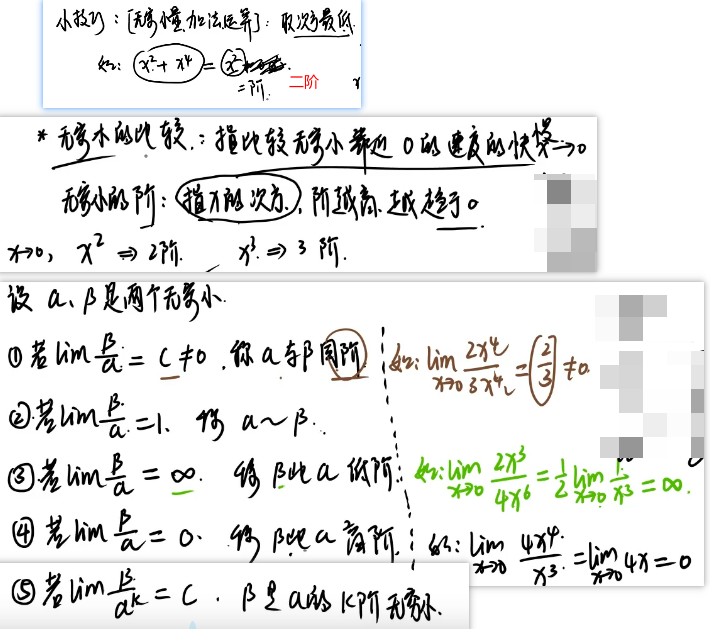 小技巧：[无穷小量加法运算]：取次方最低.
如: x²+x⁴ = x²
=阶. 二阶
* 无穷小的比较.：指比较无穷小靠近 0 的速度的快慢→0
无穷小的阶：指x的次方, 阶越高.越趋于0.
x→0, x² ⇒ 2阶. x³ ⇒ 3 阶.
设 α、β是两个无穷小.
①若lim β/α = C ≠0 .称α与β同阶
如: lim x→0 2x⁴/3x⁴ = 2/3 ≠0
②.若lim β/α =1. 称 α~β.
③若lim β/α = ∞. 称β比α低阶.
如:lim x→0 2x³/4x⁶ = 1/2 lim x→0 1/x³ = ∞.
④ 若lim β/α = 0. 称β比α高阶.
如: lim x→0 4x⁴/x³ = lim x→0 4x = 0
⑤若lim β/αᵏ = C . β是α的K阶无穷小.